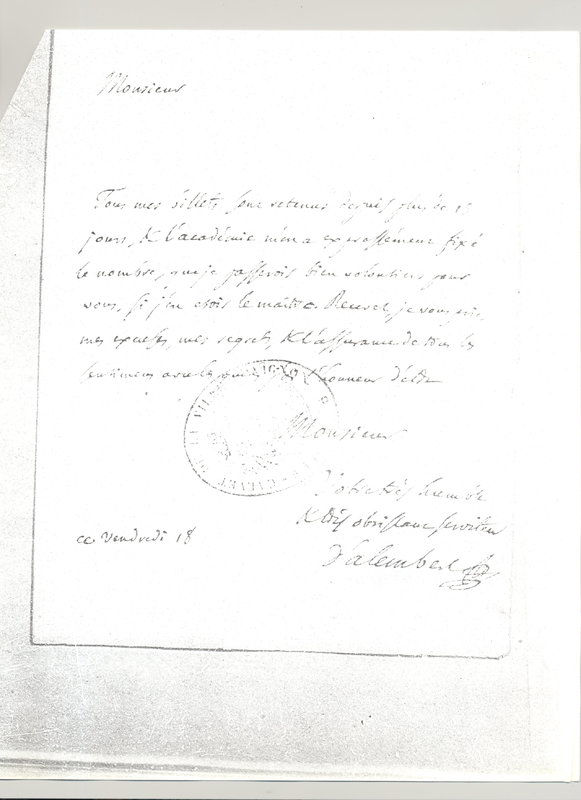 Monsieur
Tous mes billets sont retenus depuis plus de 15
jours, & l'académie m'en a expressément fixé
le nombre, que je passerois bien volontiers pour
vous, si j'en étois le maitre. Recevez, je vous prie,
mes excuses, mes regrets, & l'assurance de tous les
sentimens avec lesquels l'honneur d'être
Monsieur
Votre très humble
& très obéissant serviteur
D'alembert
ce vendredi 18